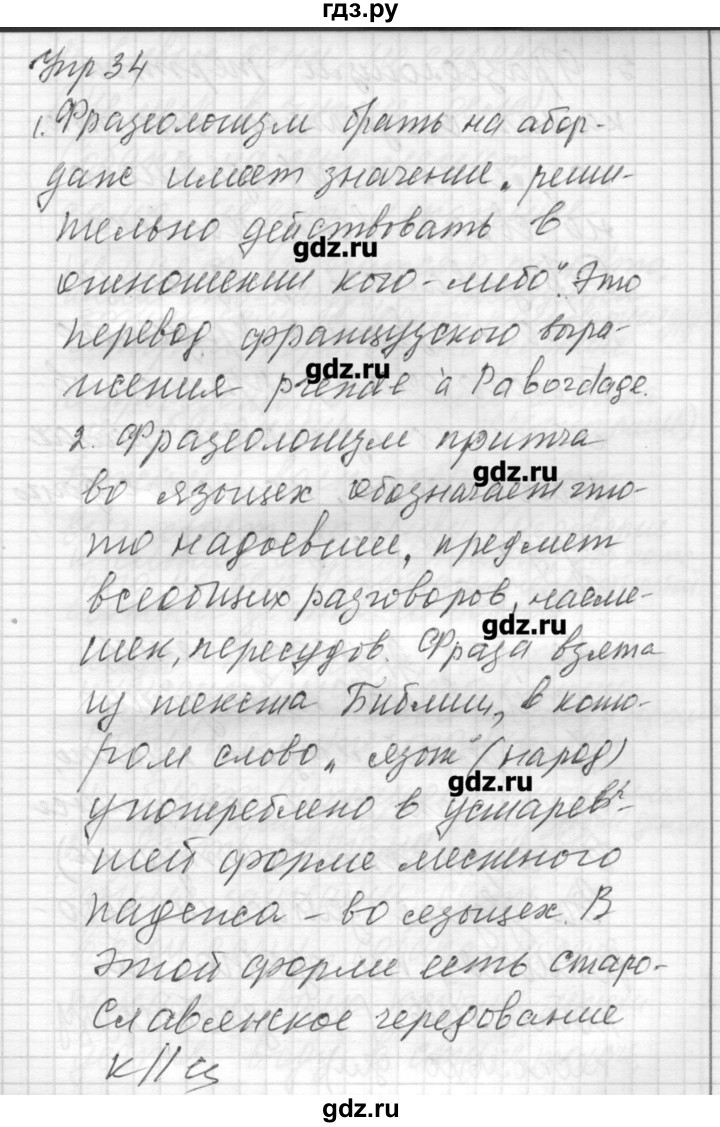 гдз.ру
Упр 34
1. Фразеологизм брать на абор-
даж имеет значение „реши-
тельно действовать в
gdz.ru
отношении кого-либо". Это
перевод французского выра-
gdz.ru
жения prendre à l'abordage.
2. Фразеологизм притча
gdz.ru
во языцех обозначает что-
то надоевшее, предмет
всеобщих разговоров, насме-
gdz.ru
шек, пересудов. Фраза взята
из текста Библии, в кото-
ром слово „язык" (народ)
gdz.ru
употреблено в устарев-
шей форме местного
падежа - во языцех. В
этой форме есть старо-
славянское чередование
к//ц
gdz.ru